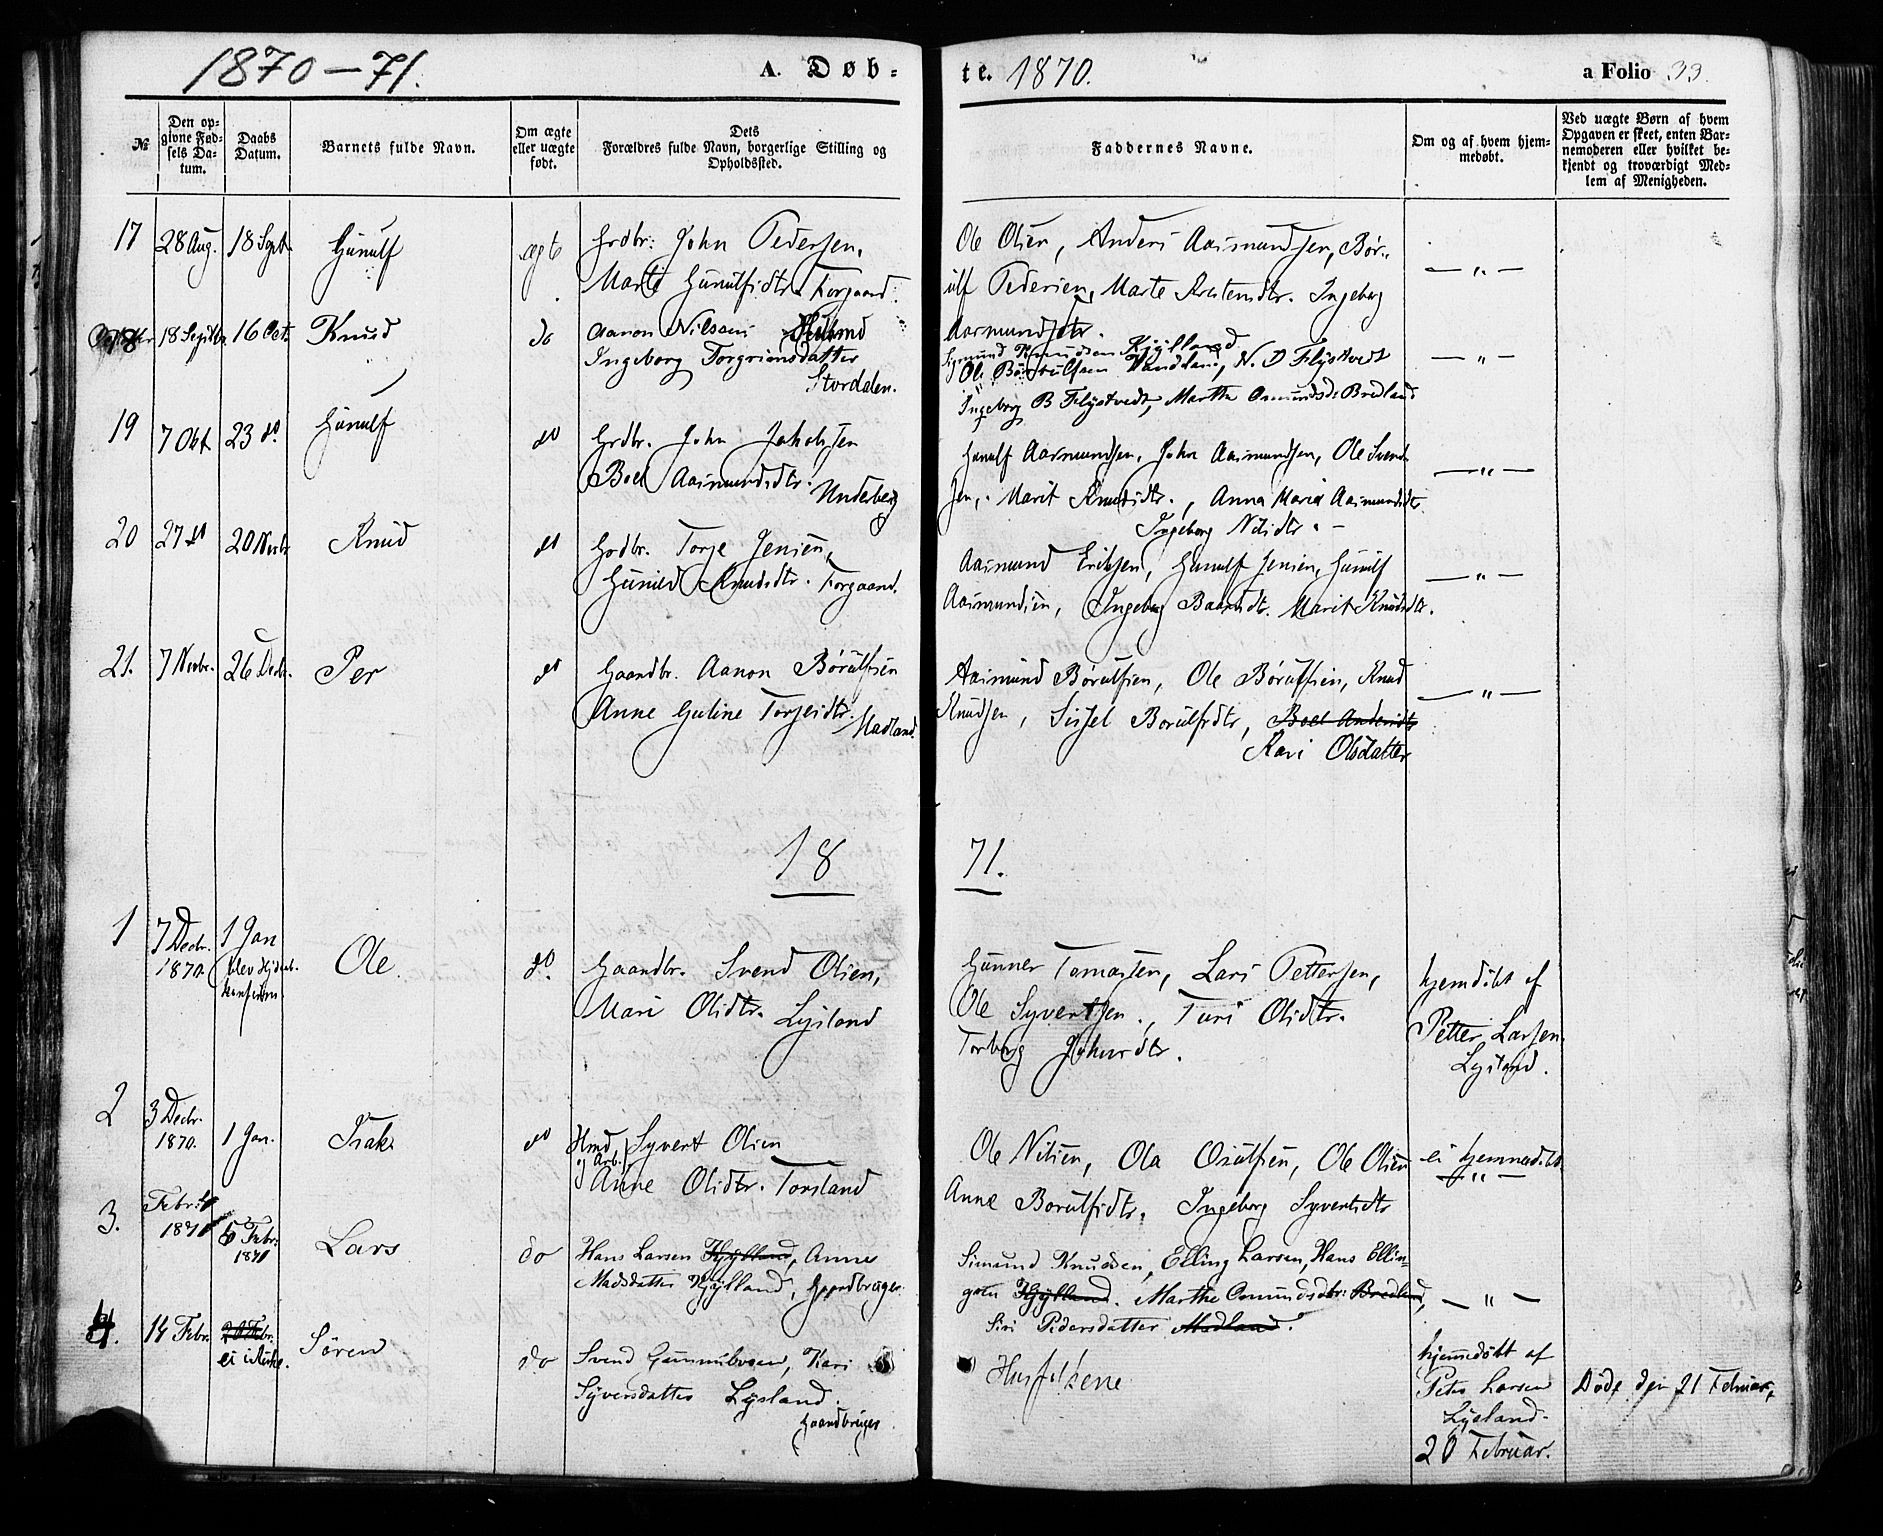 1870–71. A. Døb- te. 1870. a Folio 33.
№
Den op-
givne Fød-
sels Da-
tum.
Daabs
Datum.
Barnets fulde Navn.
Om ægte
eller uægte
født.
Dets
Forældres fulde Navn, borgerlige Stilling og
Opholdssted.
Faddernes Navne.
Om og af hvem hjem-
medøbt.
Ved uægte Børn af hvem
Opgaven er skeet, enten Bar-
nemoderen eller hvilket be-
kjendt og troværdigt Med-
lem af Menigheden.
17 28 Aug. 18 Sept. Gunulf ægte Grdbr. John Pedersen,
Marte Gunulfsdtr. Torgaard.
Ole Olsen, Anders Aasmundsen, Bør-
ulf Pedersen, Marte Ingeborg
Aasmundsdtr.
— " —
18 18 Septbr 16 Oct. Knud do Aanon Nilsen
Ingeborg Torgrimsdatter
Stordalen.
Simund Knudsen Kjylland
Ole Børulfsen Vandland, N. O Flystvedt
Ingeborg B Flystvedt, Marthe Bredland
— " —
19 7 Okt 23 do. Gunulf do Grdbr. John Jakobsen
Boel Aasmundsdtr. Undeberg
Gunulf Aasmundsen, John Aasmundsen, Ole Svend-
sen, Marit Knudsdtr., Anna Maria Aasmundsdtr.
Ingeborg Nilsdtr. –
— " —
20 27 do 20 Novbr. Knud do Grdbr. Torje Jensen,
Gunild Knudsdtr. Torgaard.
Aasmund Eriksen, Gunulf Jensen, Gunulf
Aasmundsen, Ingeborg Baardsdtr. Marit Knudsdtr.
— " —
21. 7 Novbr. 26 Decbr. Per do Gaardbr. Aanon Børulfsen
Anne Guline Torjesdtr. Madland.
Aasmund Børulfsen, Ole Børulfsen, Knud
Knudsen, Sissel Børulfsdtr, Boel Andersdtr
Kari Olsdatter
— " —
18 71.
1 7 Decbr.
1870. 1 Jan
blev
Ole. do. Gaardbr. Svend Olsen,
Mari Olsdtr. Lysland
Gunner Tomassen, Lars Pettersen,
Ole Syvertsen., Turi Olsdtr.
Torborg
hjemdøbt af
Petter Larsen
Lysland.
2 3 Decbr.
1870. 1 Jan. Isak do Hmd
og Arb. Syvert Olsen
Anne Olsdtr. Torsland
Ole Nilsen, Ola Osulfsen, Ole Olsen
Anne Børulfsdtr. Ingeborg Syvertsdtr
ei hjemmedøbt
— " —
3. Febr.
1871 5 Febr:
1871 Lars do Hans Larsen Kjylland, Anne
Madsdatter Kjylland, Gaardbruger
Simund Knudsen, Elling Larsen, Hans Ellin-
gsen Kjylland. Marthe Osmundsdtr: Bredland,
Siri Pedersdatter Madland.
— " —
4. 14 Febr. 20 Febr.
ei i Kirke. Søren do Svend Gunnulvsen, Kari
Syversdatter Lysland.
Gaardbruger
Husfolkene
hjemmedøbt af
Peter Larsen
Lysland.
20 Februar.
Døde den 21 Februar,